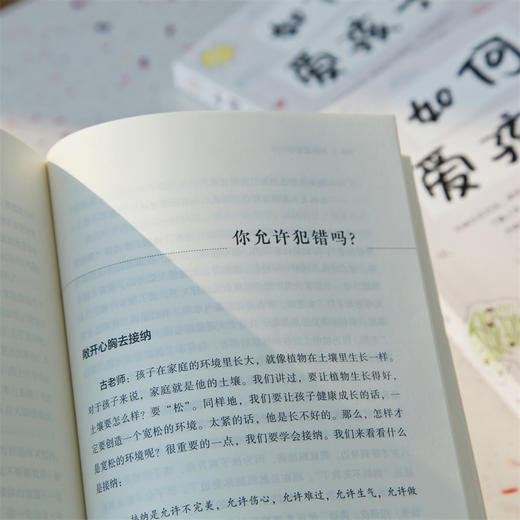 如何
爱孩子
如何
爱孩
你允许犯错吗?
敞开心胸去接纳
古老师:孩子在家庭的环境里长大,就像植物在土壤里生长一样。
对于孩子来说,家庭就是他的土壤。我们讲过,要让植物生长得好,
土壤要怎么样?要“松”。同样地,我们要让孩子健康成长的话,一
定要创造一个宽松的环境。太紧的话,他是长不好的。那么,怎样才
是宽松的环境呢?很重要的一点,我们要学会接纳。我们来看看什么
是接纳:
接纳是允许不完美,允许伤心,允许难过,允许生气,允许做